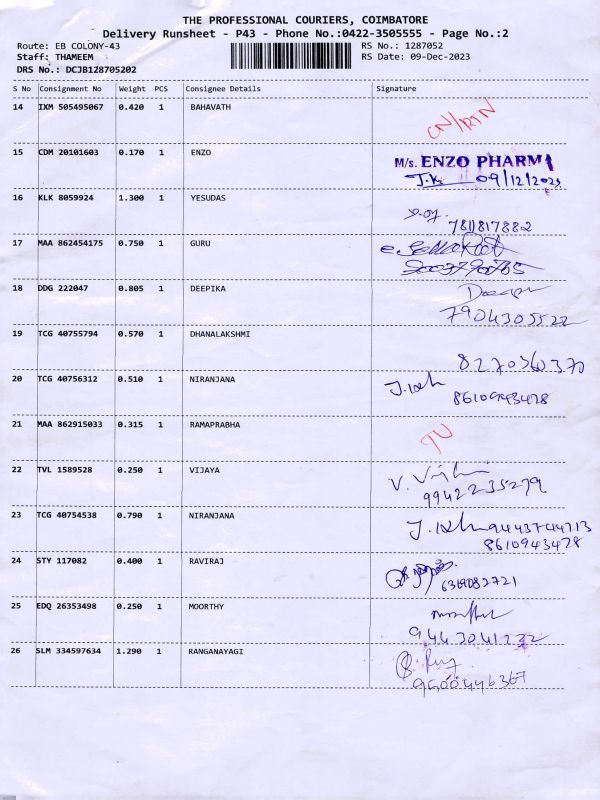 THE PROFESSIONAL COURIERS, COIMBATORE
Delivery Runsheet - P43 - Phone No.:0422-3505555 - Page No.:2
Route: EB COLONY-43 RS No.: 1287052
Staff: THAMEEM RS Date: 09-Dec-2023
DRS No.: DCJB128705202
S No Consignment No Weight PCS Consignee Details Signature
14 IXM 505495067 0.420 1 BAHAVATH
CN/RTN
15 CDM 20101603 0.170 1 ENZO
M/s. ENZO PHARMA
J.K. 09/12/2023
16 KLK 8059924 1.300 1 YESUDAS
7811817882
17 MAA 862454175 0.750 1 GURU
18 DDG 222047 0.805 1 DEEPIKA
7904305522
19 TCG 40755794 0.570 1 DHANALAKSHMI
8270360370
20 TCG 40756312 0.510 1 NIRANJANA
8610943478
21 MAA 862915033 0.315 1 RAMAPRABHA
22 TVL 1589528 0.250 1 VIJAYA
V. Vijhi
9942235279
23 TCG 40754538 0.790 1 NIRANJANA
9443744713
8610943478
24 STY 117082 0.400 1 RAVIRAJ
6369082721
25 EDQ 26353498 0.250 1 MOORTHY
9443041232
26 SLM 334597634 1.290 1 RANGANAYAGI
9500446367